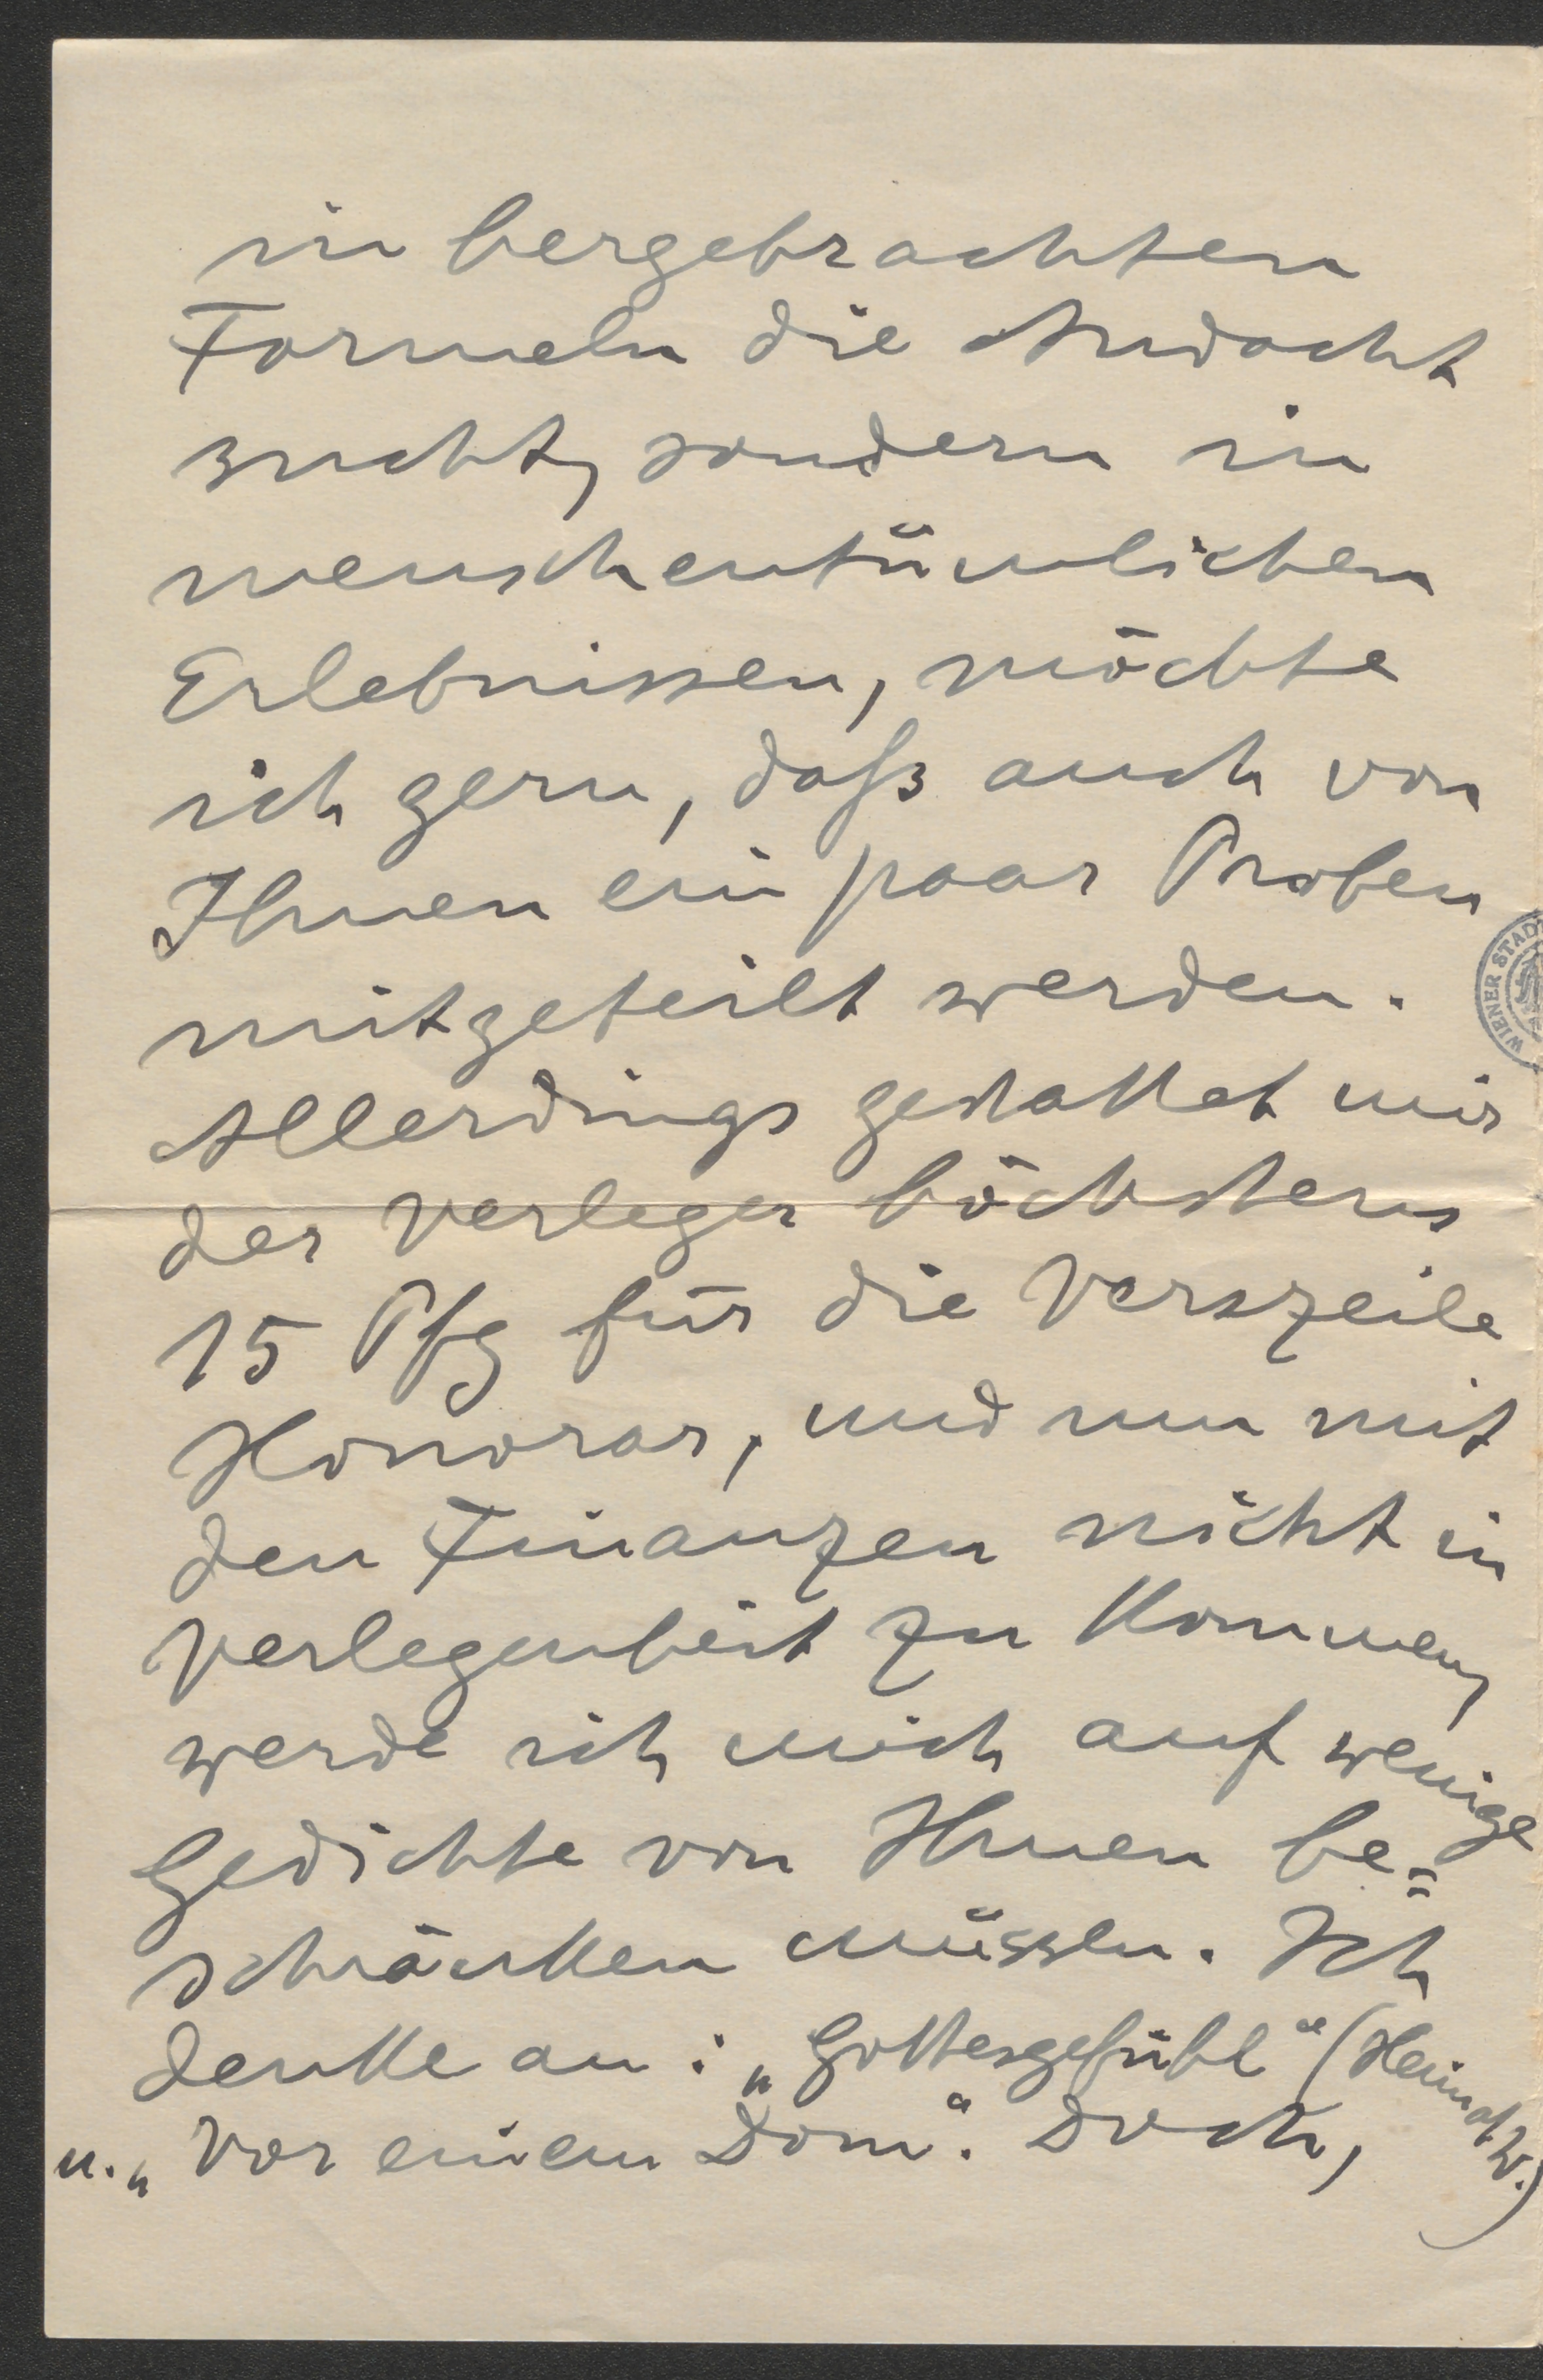 in hergebrachten
Formeln die Andacht
sucht, sondern in
menschentümlichen
Erlebnissen, möchte
ich gern, daß auch von
Ihnen ein paar Proben
mitgeteilt werden.
WIENER STAD
Allerdings gestattet mir
der Verleger höchstens
15 Pfg für die Verszeile
Honorar, und um mit
den Finanzen nicht in
Verlegenheit zu kommen,
werde ich mich auf wenige
Gedichte von Ihnen be=
schränken müssen. Ich
denke an: „Gottesgefühl“ (
u. „Vor einem Dom“. Doch,